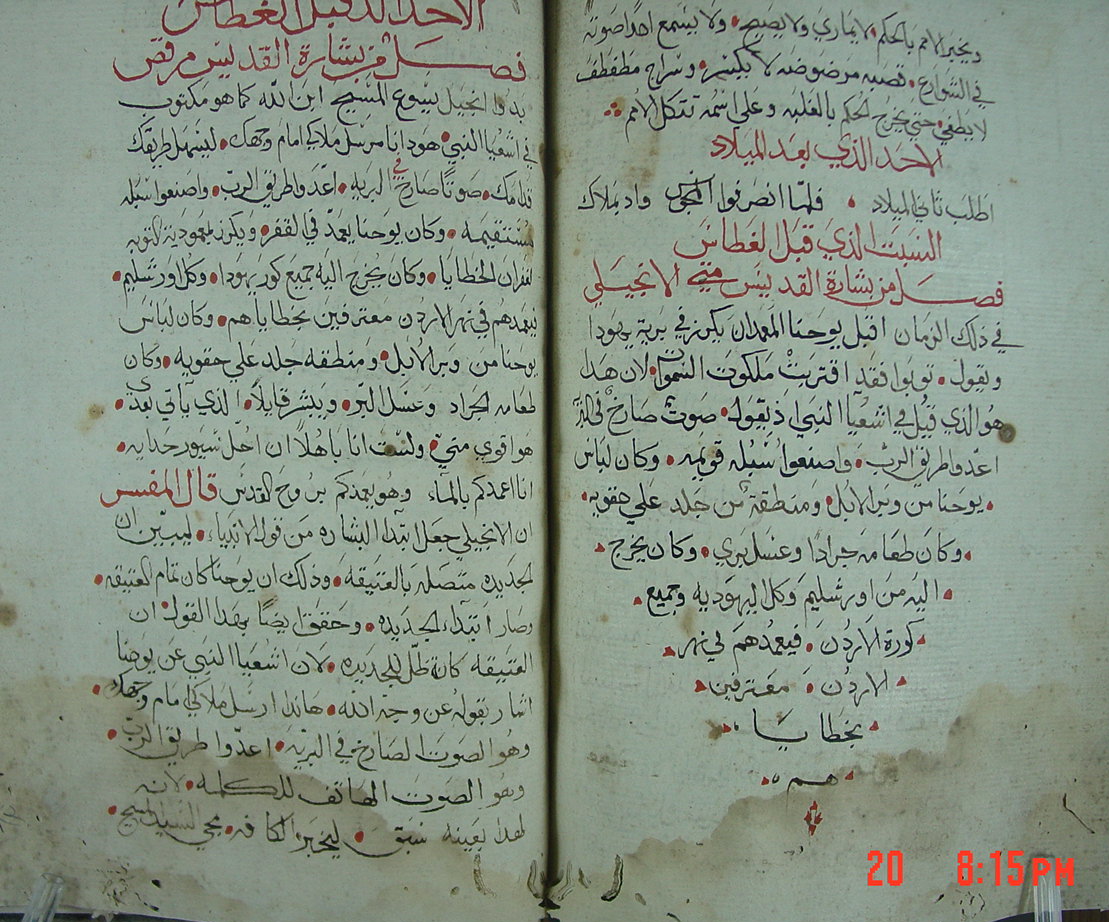 ويخبر الامم بالحكم • لا يماري ولا يصيح • ولا يسمع احدًا صوته
في الشوارع • قصبه مرضوضه لا يكسر • وسراج مطفطف
لا يطفي • حتي يخرج الحكم بالغلبه وعلي اسمه تتكل الامم
الاحد الذي بعد الميلاد
اطلب ثاني الميلاد • فلما انصرفوا المجوس واد بملاك
السبت الذي قبل الغطاس
فصل من بشارة القديس متي الانجيلي
في ذلك الزمان اقبل يوحنا المعمدان يكرز في برية يهودا
ويقول • توبوا فقد اقتربت ملكوت السموات • لان هدا
هو الذي قيل في اشعيا النبي اذ يقول • صوت صارخ في البر
اعدوا طريق الرب • واصنعوا سبله قويمه • وكان لباس
يوحنا من وبر الابل • ومنطقة من جلد علي حقويه •
• وكان طعامه جرادًا وعسل بري • وكان يخرج •
• اليه من اورشليم وكل اليهوديه وجميع •
• كورة الاردن • فيعمدهم في نهر •
• الاردن • معترفين •
• بخطايا •
• هم •
الاحد الذي قبل الغطاس
فصل من بشارة القديس مرقص
بدوا انجيل يسوع المسيح ابن الله كما هو مكتوب
في اشعيا النبي • هودا انا مرسل ملاكي امام وجهك • ليسهل طريقك
قدامك • صوتًا صارخ في البريه • اعدوا طريق الرب • واصنعوا سبله
مستقيمه • وكان يوحنا يعمد في القفر • ويكرز بمعمودية التوبه
لغفران الخطايا • وكان يخرج اليه جميع كور يهودا • وكل اورشليم •
فيعمدهم في نهر الاردن معترفين بخطاياهم • وكان لباس
يوحنا من وبر الابل • ومنطقه جلد علي حقويه • وكان
طعامه الجراد وعسل البر • ويبشر قايلاً • الذي ياتي بعدي •
هو اقوي مني • ولست انا باهلاً ان احل سيور حدايه •
انا اعمدكم بالماء وهو يعمدكم بروح القدس قال المفسر
ان الانجيلي جعل ابتدا البشاره من قول الانبياء • ليبين ان
الجديده متصله بالعتيقه • وذلك ان يوحنا كان تمام العتيقه •
وصار ابتداء الجديده • وحقق ايضًا بهدا القول ان
العتيقه كانة ظل للجديده • لان اشعيا النبي عن يوحنا
اشار بقوله عن وجه الله • هاندا ارسل ملاكي امام وجهك •
وهو الصوت الصارخ في البريه • اعدوا طريق الرب •
وهو الصوت الهاتف للكلمه • لانه
لهدا بعينه سبق • ليخبر الكافه • بمجي السيد المسيح •